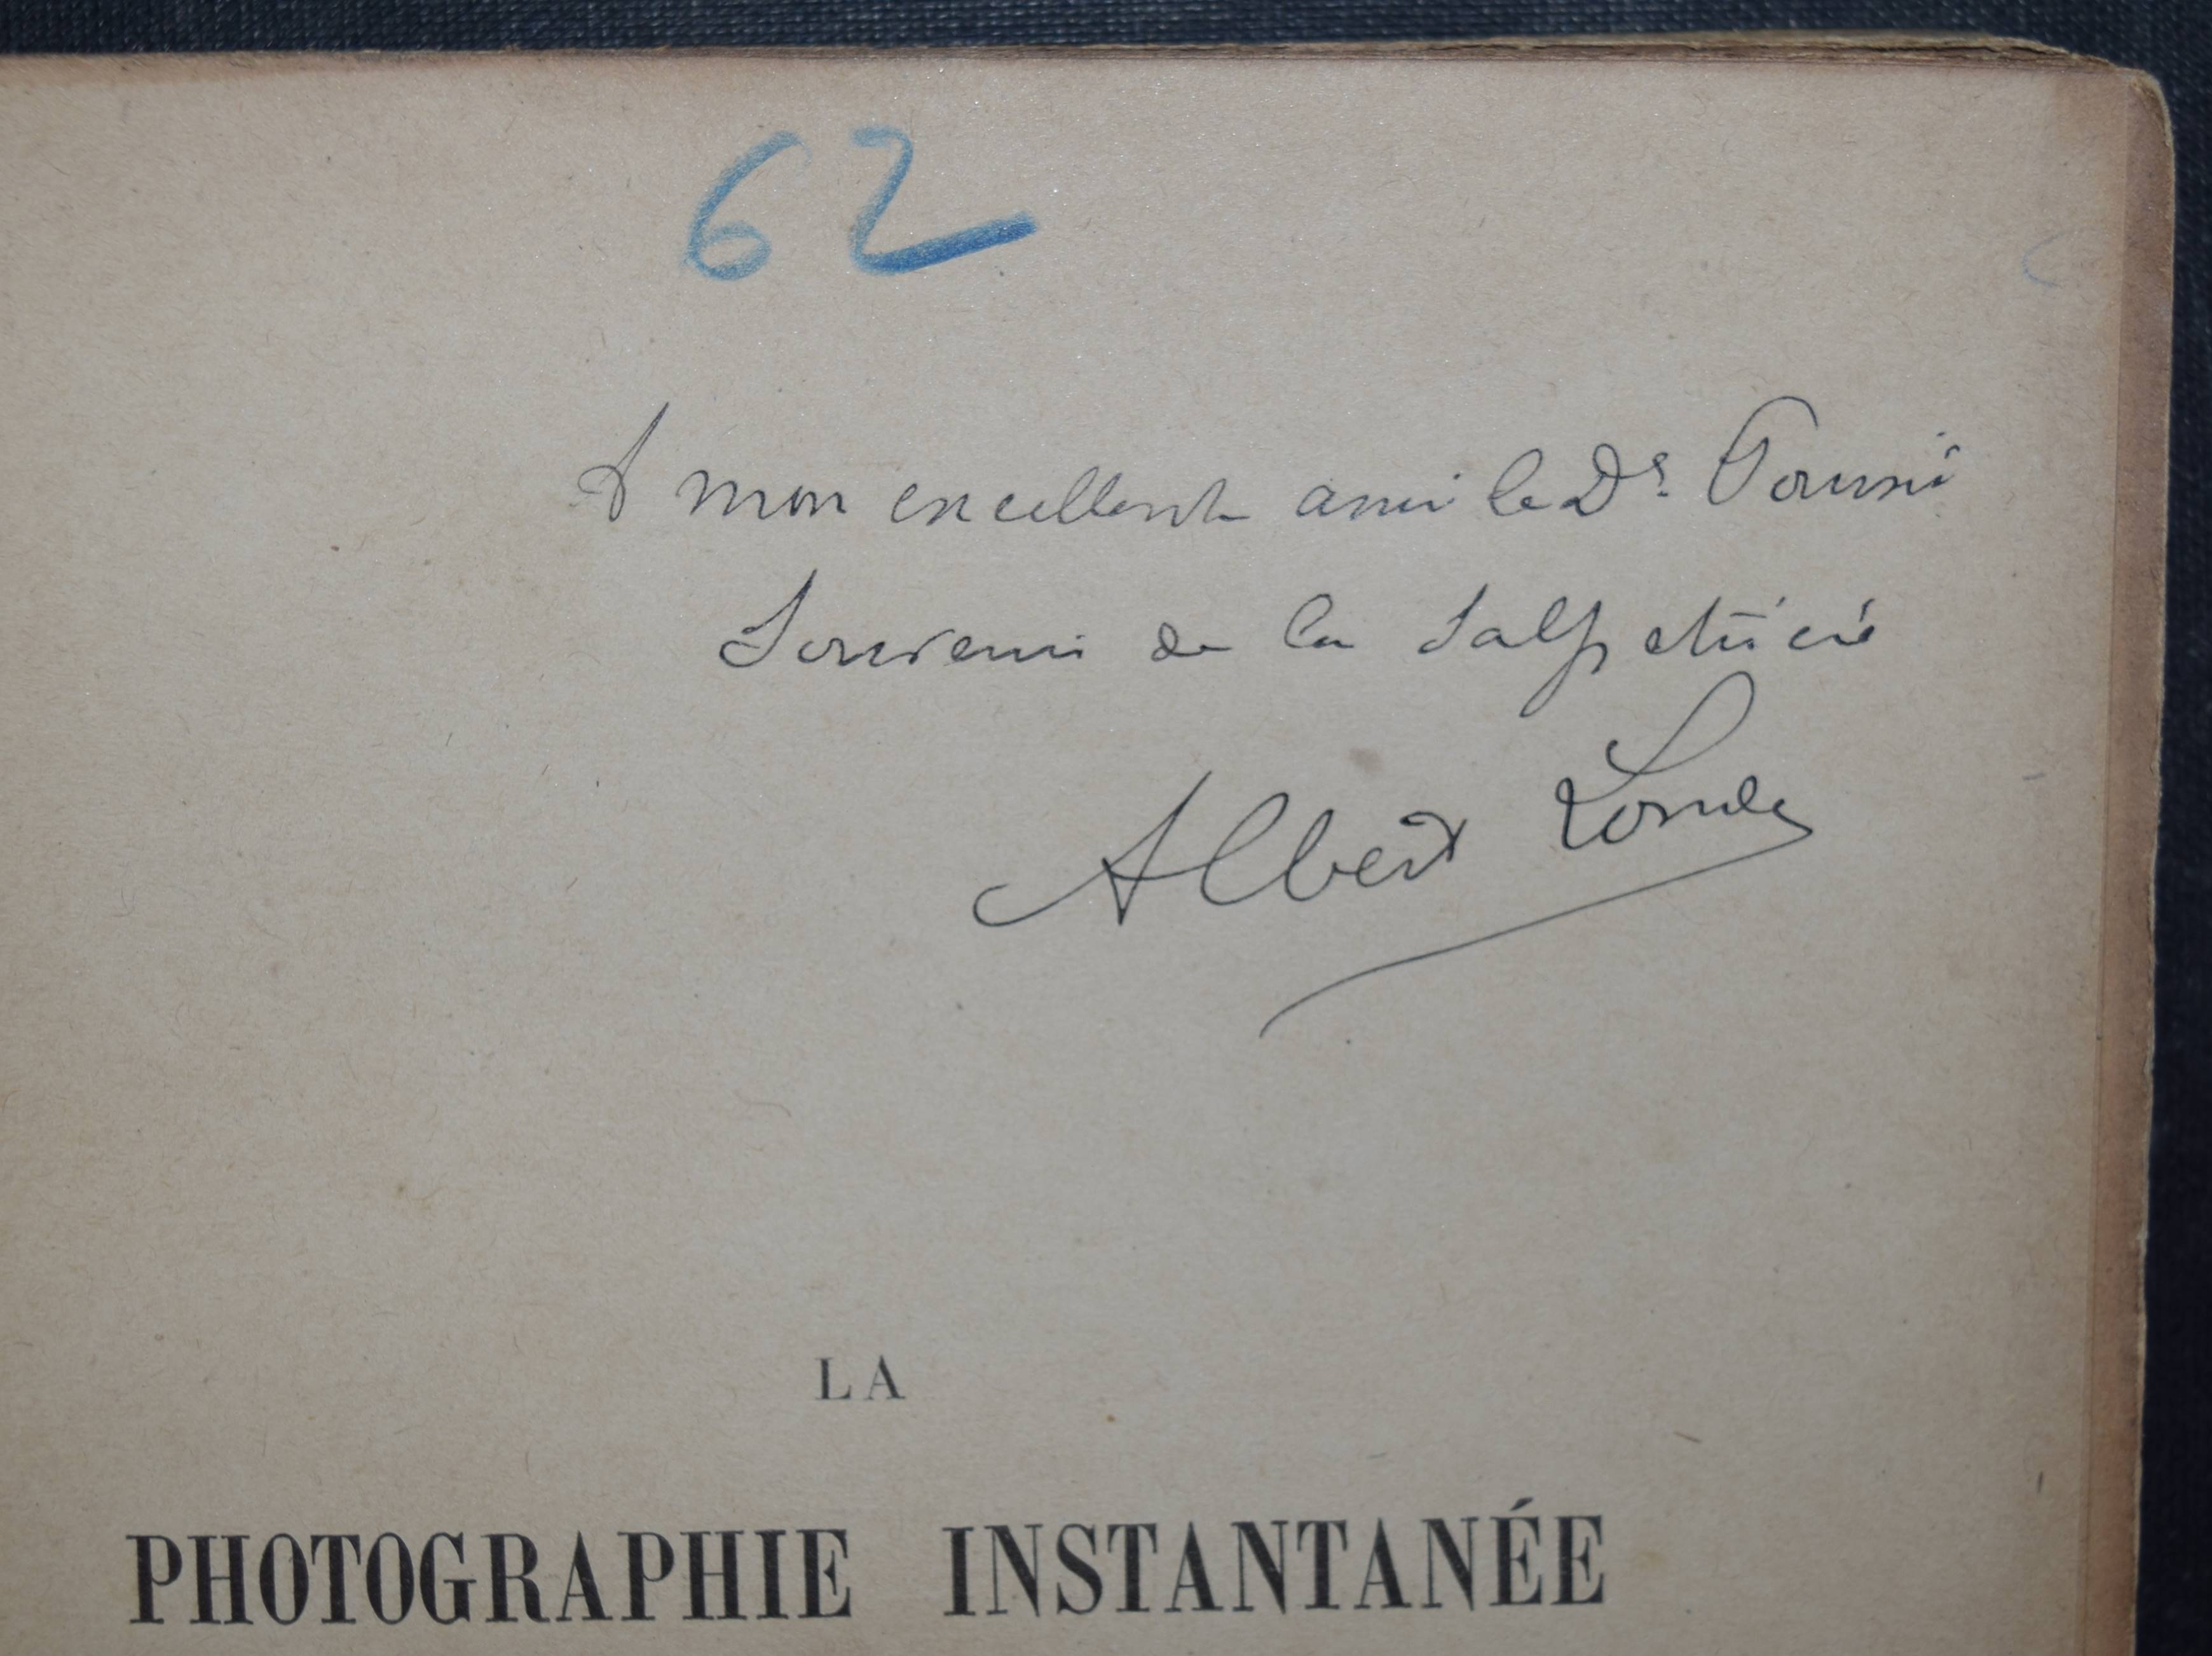 62
A mon excellent ami le Dr.
Souvenir de la Salpêtrière
Albert Londe
LA
PHOTOGRAPHIE INSTANTANÉE